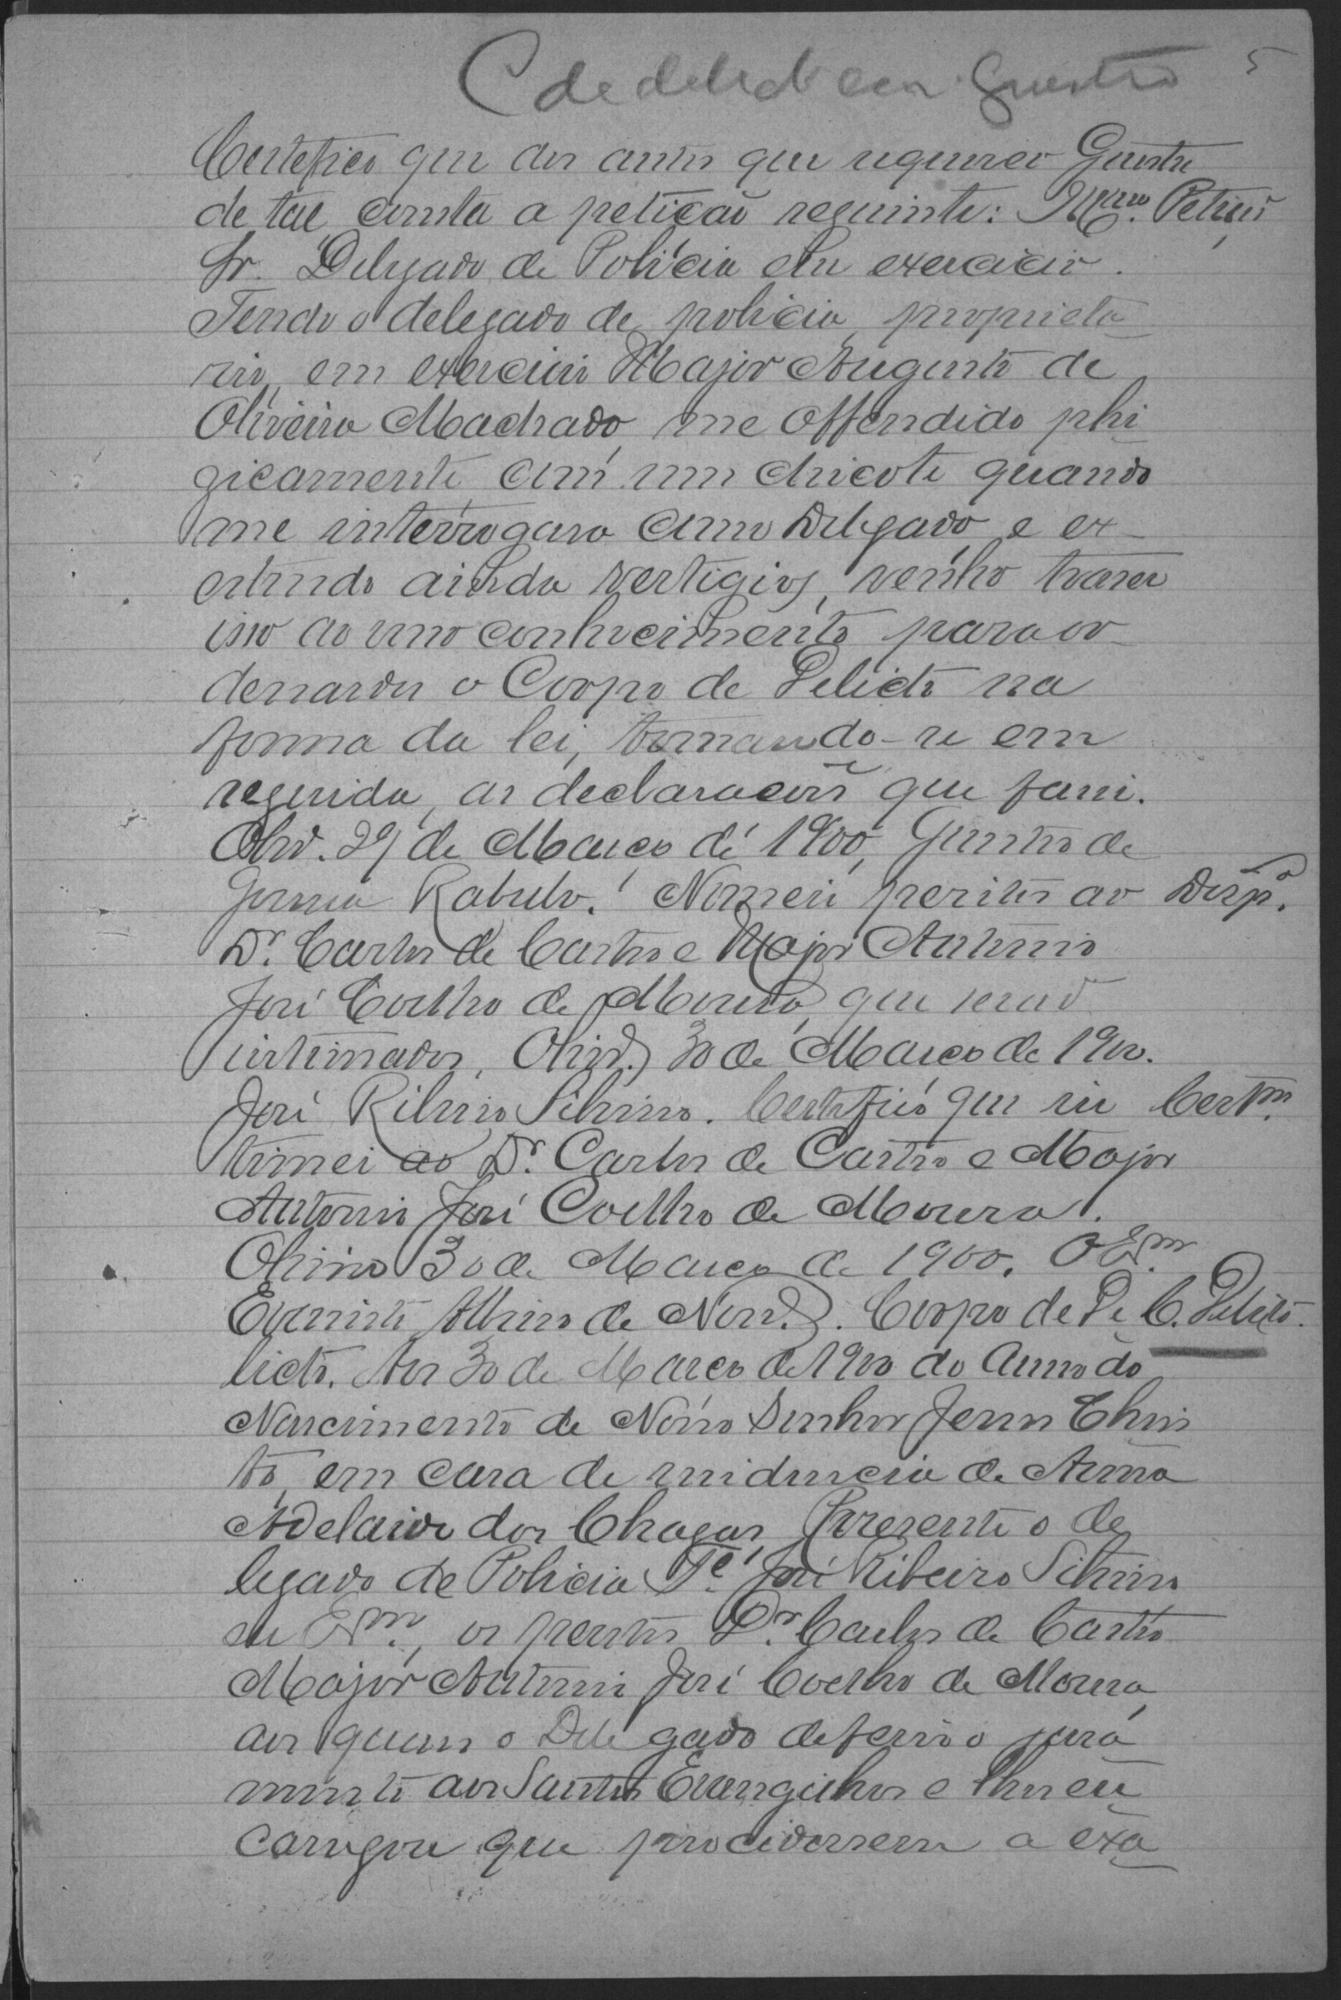 C de delicto em Questão 5
Certefico que dos autos que requereo Questão
de tal consta a petição seguinte: Illmo. Petição
Sr. Delegado de Policia em exercicio.
Tendo o delegado de policia, proprieta
rio, em exercicio Major Augusto de
Oliveira Machado, me offendido phi
zicamente com um chicote quando
me interrogava como Delegado, e ex-
estindo ainda vestigios, venho trazer
isso ao vmo conhecimento para or-
denardes o Corpo de Delicto na
forma da lei, tomando-se em
seguida, as declarações que farei.
Olivª. 29 de Março de 1900,
Rabelo. Nomeio peritos ao Despº.
Dr. Carlos de Castro e Major Antonio
José Coelho de Moura, que serão
intimados, Olivª. 30 de Março de 1900.
José Ribeiro Silvino. Certefico que in Certm.
timei ao Dr. Carlos de Castro e Major
Antonio José Coelho de Moura.
Olivira 30 de Março de 1900. O Em.
Evaristo Albino de Noro. Corpo de De C. Delicto.
licto. Aos 30 de Março de 1900 do Anno do
Nascimento de Nosso Senhor Jesus Chris
to, em casa de residencia de Anna
Adelaide das Chagas, Presente o de
legado de Policia Te. José Ribeiro Silvino
eu Em., os peritos Dr. Carlos de Castro
Major Antonio José Coelho de Moura,
aos quaes o Delegado deferio o jura
mento aos Santos Evangelhos e lhes en
carregou que procedessem a exa